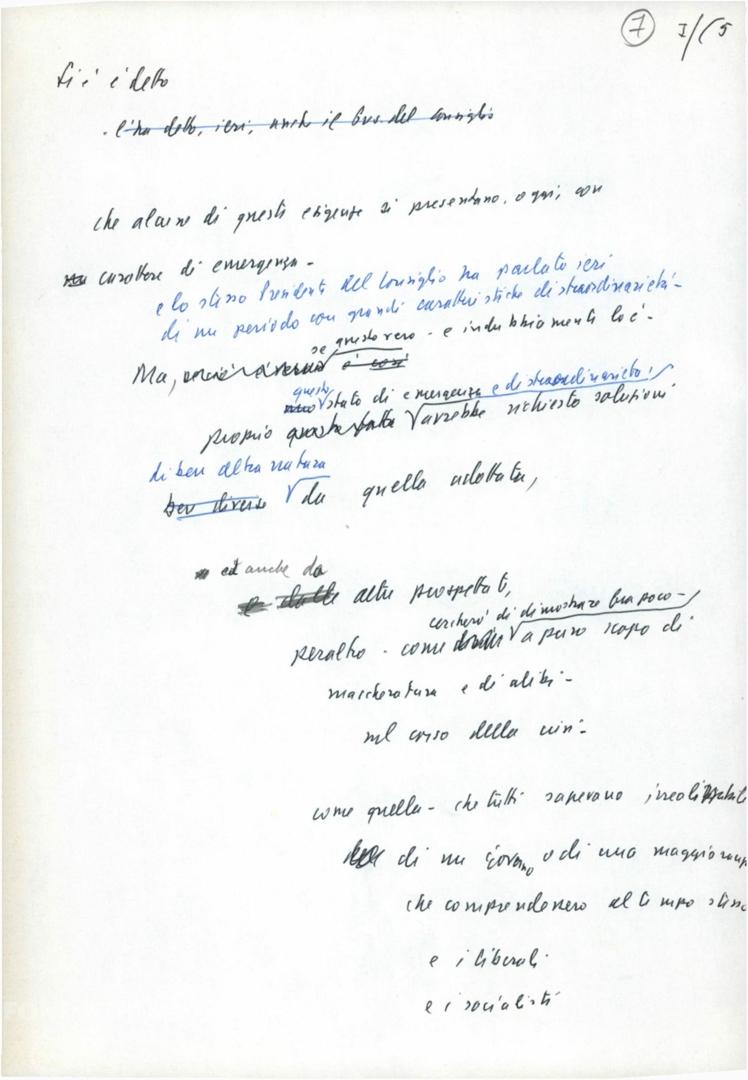 7 I/(5
Si è è detto
- l'ha detto, ieri, anche il Pres. del Consiglio
che alcune di queste esigenze si presentano, oggi, con
carattere di emergenza -
e lo stesso Presidente del Consiglio ha parlato ieri
di un periodo con grandi caratteristiche di straordinarietà -
se questo è vero - e indubbiamente lo è -
Ma, è così
questo
stato di emergenza e di straordinarietà,
proprio avrebbe richiesto soluzioni
di ben altra natura
ben diverse da quella adottata,
ed anche da
e dalle altre prospettate,
cercherò di dimostrare tra poco -
peraltro - come a puro scopo di
mascheratura e di alibi -
nel corso della crisi -
come quella - che tutti sapevano irrealizzabile
di un governo o di una maggioranza
che comprendessero al tempo stesso
e i liberali
e i socialisti